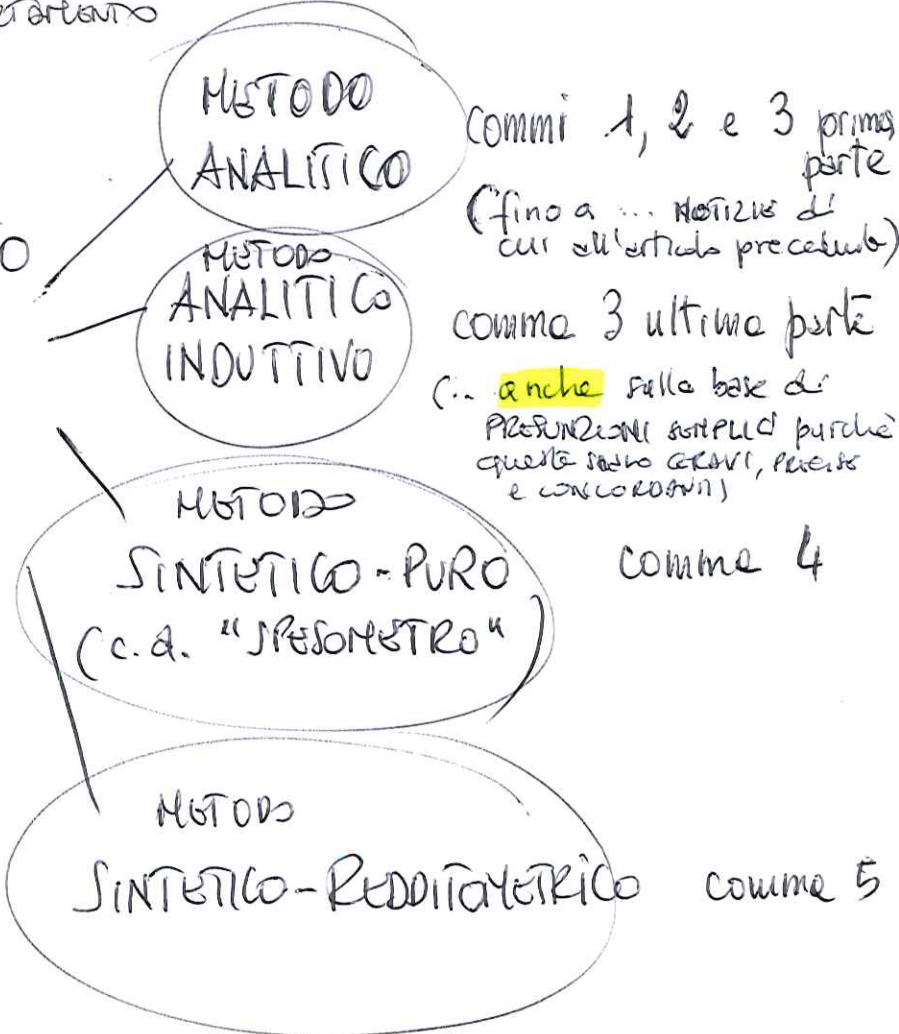 METODO
ANALITICO
commi 1, 2 e 3 prima
parte
(fino a ... NOTIZIE di
cui all'articolo precedente)
O
METODO
ANALITICO
INDUTTIVO
comma 3 ultima parte
(.. anche sulla base di
PRESUNZIONI SEMPLICI purchè
queste siano GRAVI, PRECISE
e CONCORDANTI)
METODO
SINTETICO-PURO
(c.d. "SPESOMETRO")
comma 4
METODO
SINTETICO-REDDITOMETRICO comma 5